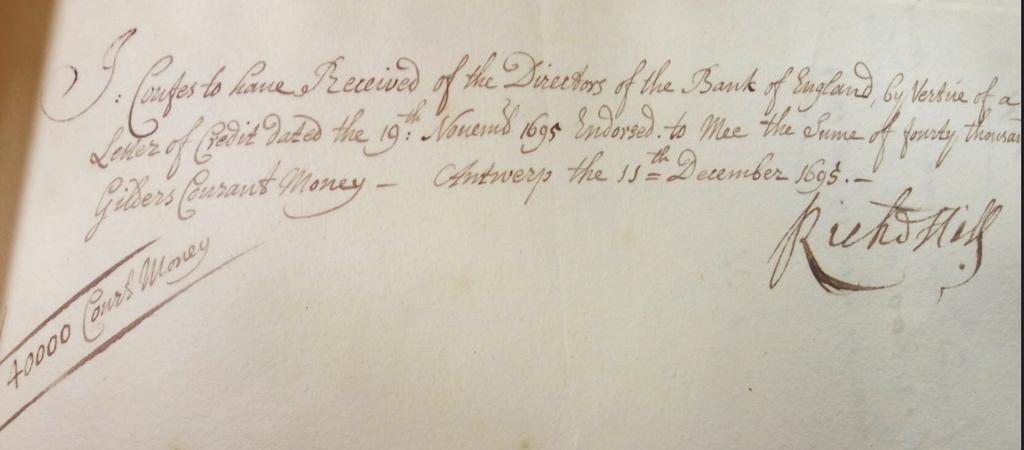 I: Confes to haue Received of the Directors of the Bank of England, by Vertue of a
Letter of Credit dated the 19:th Nouemb 1695 Endorsed to Mee the Sume of fourty thousan
Gilders Courant Money – Antwerp the 11th December 1695. –
Richd Hill
40000 Court Money